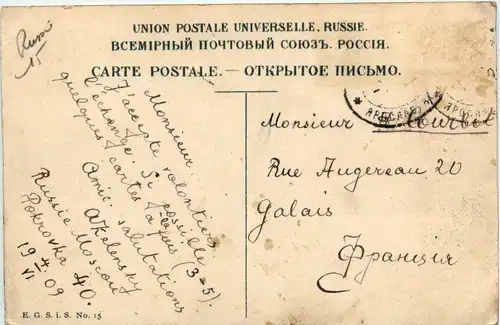 Russ
15
UNION POSTALE UNIVERSELLE. RUSSIE.
ВСЕМІРНЫЙ ПОЧТОВЫЙ СОЮЗЪ. РОССІЯ.
CARTE POSTALE. — ОТКРЫТОЕ ПИСЬМО.
Monsieur.
J'accepte volontiers
l'échange. Si possible
quelques cartes (3-5).
Amic. salutations
Russie Moscou
Pokrovka 40.
19 4/VI 09
Monsieur Courbet
Rue Augereau 20
Calais
Франція
E. G. S. i. S. No. 15